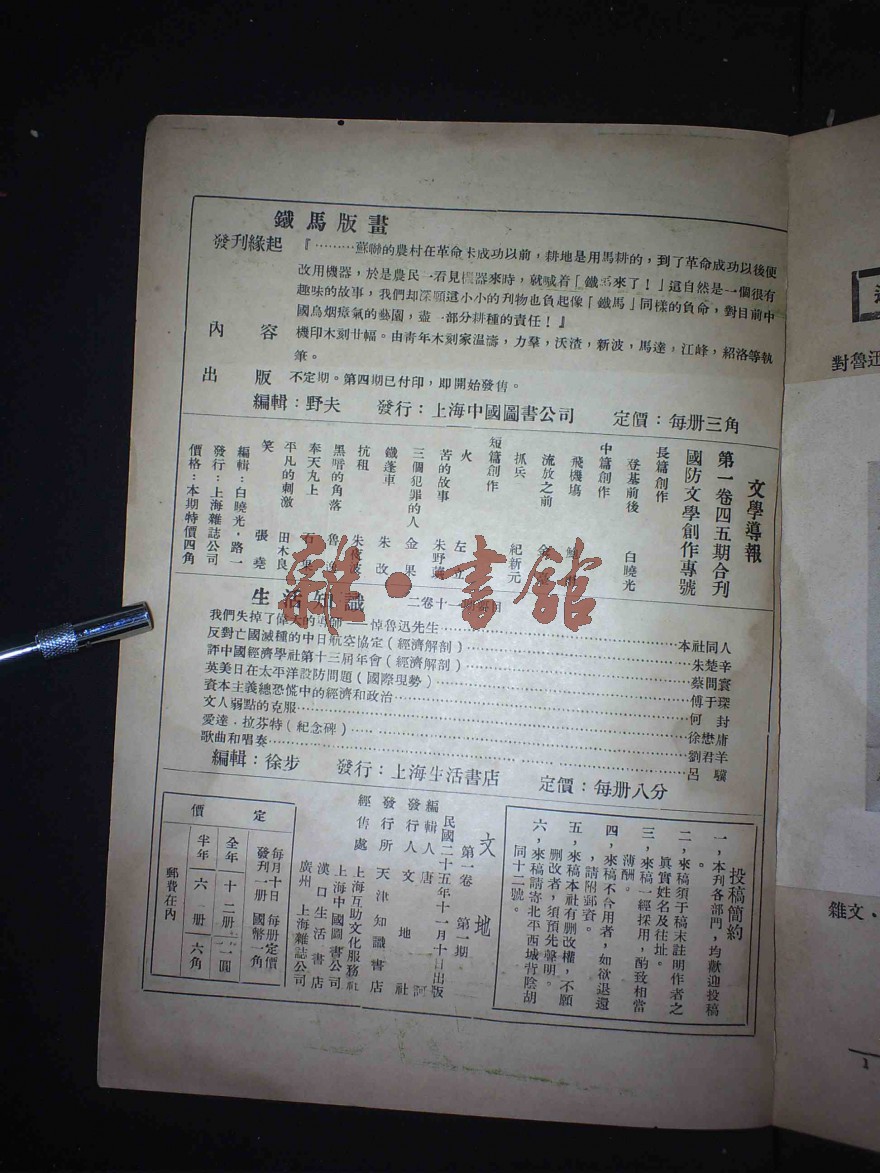 鐵馬版畫
發刊緣起
『………蘇聯的農村在革命未成功以前，耕地是用馬耕的，到了革命成功以後便
改用機器，於是農民一看見機器來時，就喊着「鐵馬來了！」這自然是一個很有
趣味的故事，我們却深願這小小的刊物也負起像「鐵馬」同樣的負命，對目前中
國烏烟瘴氣的藝園，盡一部分耕種的責任！』
內容
機印木刻廿幅。由青年木刻家温濤，力羣，沃渣，新波，馬達，江峰，紹洛等執
筆。
出版
不定期。第四期已付印，即開始發售。
編輯：野夫 發行：上海中國圖書公司 定價：每册三角
文學導報
第一卷四五期合刊
國防文學創作專號
長篇創作
登基前後 白曉光
中篇創作
飛機塲
流放之前 金
抓兵 紀新元
短篇創作
火 左
苦的故事 朱野蕻
三個犯罪的人 金果
鐵蓬車 朱改
抗租 朱
黑暗的角落 魯
奉天丸上 石果
平凡的刺激 田木良
笑 張堯
編輯：白曉光，路一
發行：上海雜誌公司
價格：本期特價四角
雜·書館
生活知識 二卷十一期要目
我們失掉了偉大的導師——悼魯迅先生 本社同人
反對亡國滅種的中日航空協定（經濟解剖） 朱楚辛
評中國經濟學社第十三届年會（經濟解剖） 蔡問寰
英美日在太平洋設防問題（國際現勢） 傅于琛
資本主義總恐慌中的經濟和政治 何封
文人弱點的克服 徐懋庸
愛達．拉芬特（紀念碑） 劉君羊
歌曲和唱奏 呂驥
編輯：徐步 發行：上海生活書店 定價：每册八分
投稿簡約
一，本刊各部門，均歡迎投稿
。
二，來稿須于稿末註明作者之
眞實姓名及住址。
三，來稿一經採用，酌致相當
薄酬。
四，來稿不合用者，如欲退還
，請附郵資。
五，來稿本社有删改權，不願
删改者，須預先聲明。
六，來稿請寄北平西城背陰胡
同十二號。
文地
第一卷 第一期
民國二十五年十一月十日出版
編輯人 唐訶
發行人 文地社
發行所 天津知識書店
經售處 上海互助文化服務社
上海中國圖書公司
漢口生活書店
廣州 上海雜誌公司
定價
每月十日 每册定價
發刊一册 國幣一角
全年 十二册 一圓
半年 六册 六角
郵費在內
對魯迅
雜文、
1